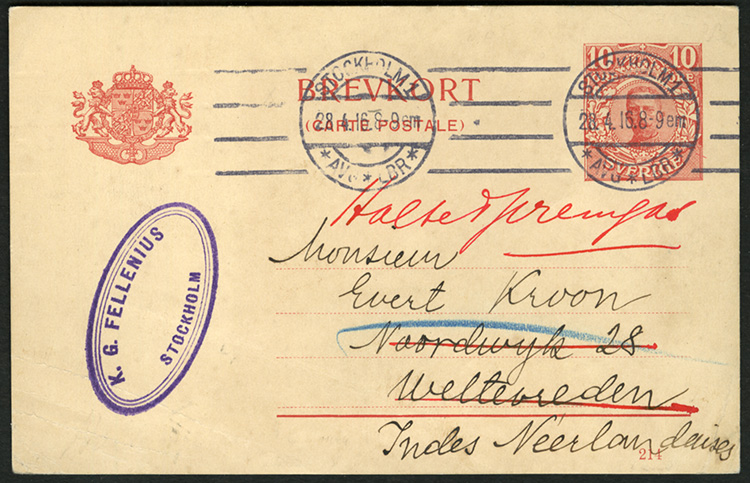 10 10
BREVKORT
(CARTE POSTALE)
STOCKHOLM 1
28.4.16.8-9 em
* AVG * LBR *
STOCKHOLM 1
28.4.16.8-9 em
* AVG * LBR *
SVERIGE
K. G. FELLENIUS
STOCKHOLM
Monsieur
Evert Kroon
Noordwyk 28
Weltevreden
Indes Néerlandaises
214